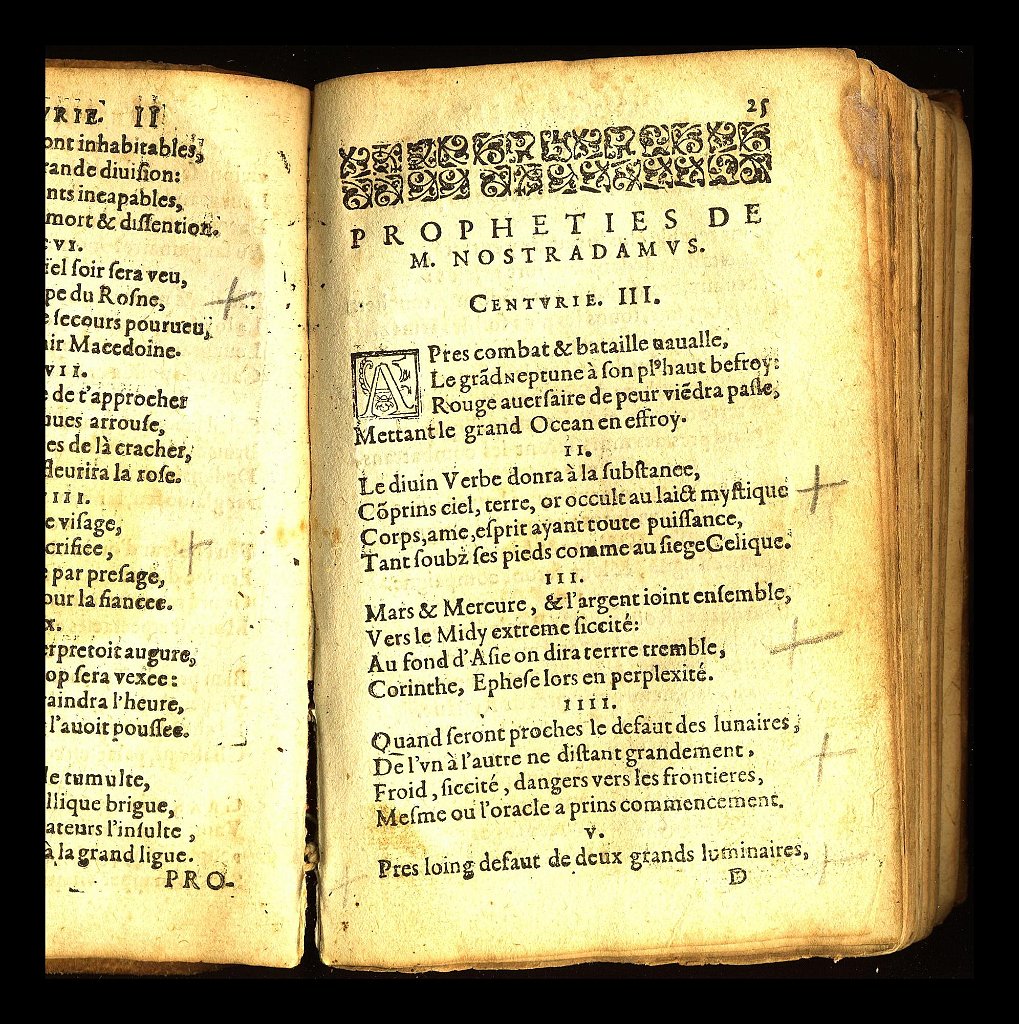 VRIE. II
ont inhabitables,
rande diuiſion:
nts incapables,
mort & diſſention.
VI.
iel ſoir ſera veu,
pe du Roſne,
e ſecours pourueu,
ir Macedoine.
VII.
e de t'approcher
nues arrouſe,
es de là cracher,
fleurira la roſe.
III.
e viſage,
crifiee,
e par preſage,
our la fiancee.
x.
erpretoit augure,
op ſera vexee:
raindra l'heure,
l'auoit pouſſee.
le tumulte,
llique brigue,
ateurs l'inſulte,
à la grand ligue.
PRO-
25
PROPHETIES DE
M. NOSTRADAMVS.
CENTVRIE. III.
APres combat & bataille naualle,
Le grãd Neptune à ſon plꝰ haut befroy:
Rouge auerſaire de peur viẽdra paſle,
Mettant le grand Ocean en effroy.
II.
Le diuin Verbe donra à la ſubſtance,
Cõprins ciel, terre, or occult au laict myſtique
Corps, ame, eſprit ayant toute puiſſance,
Tant ſoubz ſes pieds comme au ſiege Celique.
III.
Mars & Mercure, & l'argent ioint enſemble,
Vers le Midy extreme ſiccité:
Au fond d'Aſie on dira terrre tremble,
Corinthe, Epheſe lors en perplexité.
IIII.
Quand ſeront proches le defaut des lunaires,
De l'vn à l'autre ne diſtant grandement,
Froid, ſiccité, dangers vers les frontieres,
Meſme ou l'oracle a prins commencement.
V.
Pres loing defaut de deux grands luminaires,
D